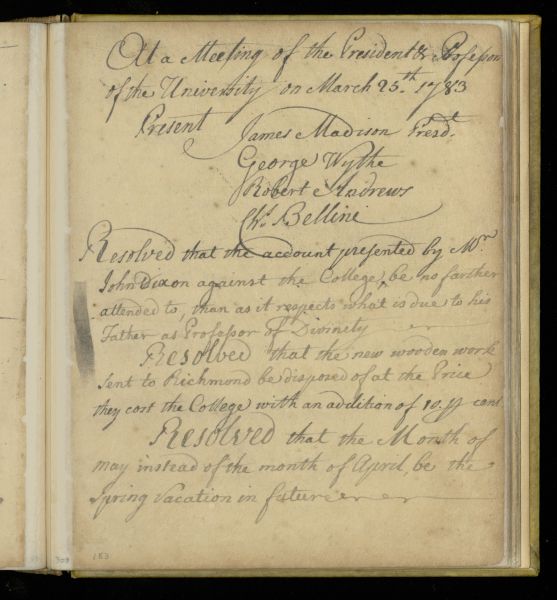 At a Meeting of the President & Professors
of the University on March 25.th 1783
Present
James Madison Presdt.
George Wythe
Robert Andrews
Chs. Bellini
Resolved that the account presented by Mr
John Dixon against the College, be no farther
attended to, than as it respects what is due to his
Father as Professor of Divinity
Resolved that the new wooden work
sent to Richmond be disposed of at the Price
they cost the College with an addition of 10. cent
Resolved that the Month of
may instead of the month of April, be the
Spring Vacation in future
183